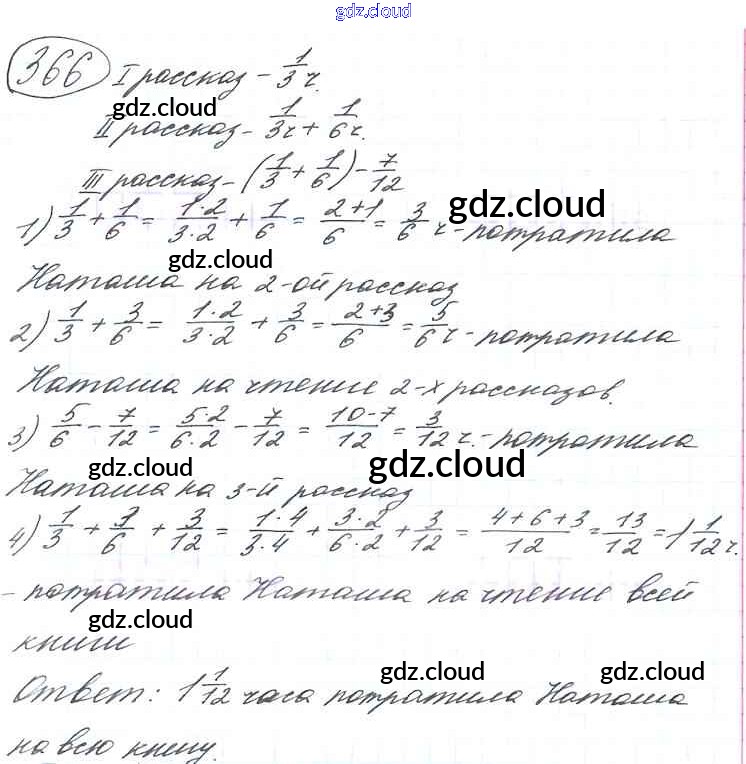 gdz.cloud
366 I рассказ - 1/3 ч.
gdz.cloud
II рассказ - 1/3 ч + 1/6 ч.
III рассказ - (1/3 + 1/6) - 7/12
gdz.cloud
1) 1/3 + 1/6 = 1·2/3·2 + 1/6 = 2+1/6 = 3/6 ч - потратила
gdz.cloud
Наташа на 2-ой рассказ
2) 1/3 + 3/6 = 1·2/3·2 + 3/6 = 2+3/6 = 5/6 ч - потратила
Наташа на чтение 2-х рассказов.
3) 5/6 - 7/12 = 5·2/6·2 - 7/12 = 10-7/12 = 3/12 ч. - потратила
gdz.cloud gdz.cloud
Наташа на 3-й рассказ
4) 1/3 + 3/6 + 3/12 = 1·4/3·4 + 3·2/6·2 + 3/12 = 4+6+3/12 = 13/12 = 1 1/12 ч.
- потратила Наташа на чтение всей
gdz.cloud
книги
gdz.cloud gdz.cloud
Ответ: 1 1/12 часа потратила Наташа
на всю книгу.